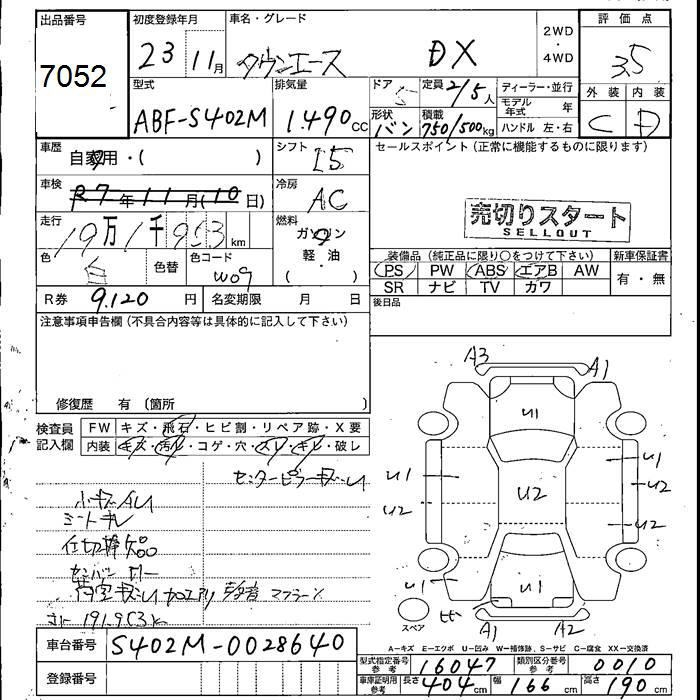 出品番号
7052
初度登録年月
23 11月
車名・グレード
タウンエース DX
2WD
・
4WD
評価点
3.5
型式
ABF-S402M
排気量
1.490cc
ドア
5
定員 2/5人
形状 バン
積載 750/500kg
ディーラー・並行
モデル年式 年
ハンドル 左・右
外装 内装
C D
車歴
自家用・( )
シフト
I5
セールスポイント(正常に機能するものに限ります)
車検
R7年11月(10日)
冷房
AC
売切りスタート
SELLOUT
走行
19万1千953km
燃料
ガソリン
軽・油
・
( )
色
白
色替
色コード
W09
装備品(純正品に限り○をつけて下さい)
PS PW ABS エアB AW
SR ナビ TV カワ
新車保証書
有・無
R券 9.120円
名変期限 月 日
後日品
注意事項申告欄(不具合内容等は具体的に記入して下さい)
修復歴 有〔箇所 〕
検査員記入欄
FW キズ・飛石・ヒビ割・リペア跡・X要
内装 キズ・汚れ・コゲ・穴・スレ・キレ・破レ
センターピラーキズ・U
小キズAU
シートキレ
仕切棒欠品
荷室キズ・U 加工アリ
サビ 191.953k
A3 A1
U1
U1 U1
U2 U2 U2
U2
U1 U1
A1 A2
スペア
A－キズ E－エクボ U－凹み W－補修跡、S－サビ C－腐食 XX－交換済
車台番号 S402M-0028640
登録番号
型式指定番号 参考 16047
類別区分番号 参考 0010
車庫証明用 参考 長さ 404cm 幅 166cm 高さ 190cm